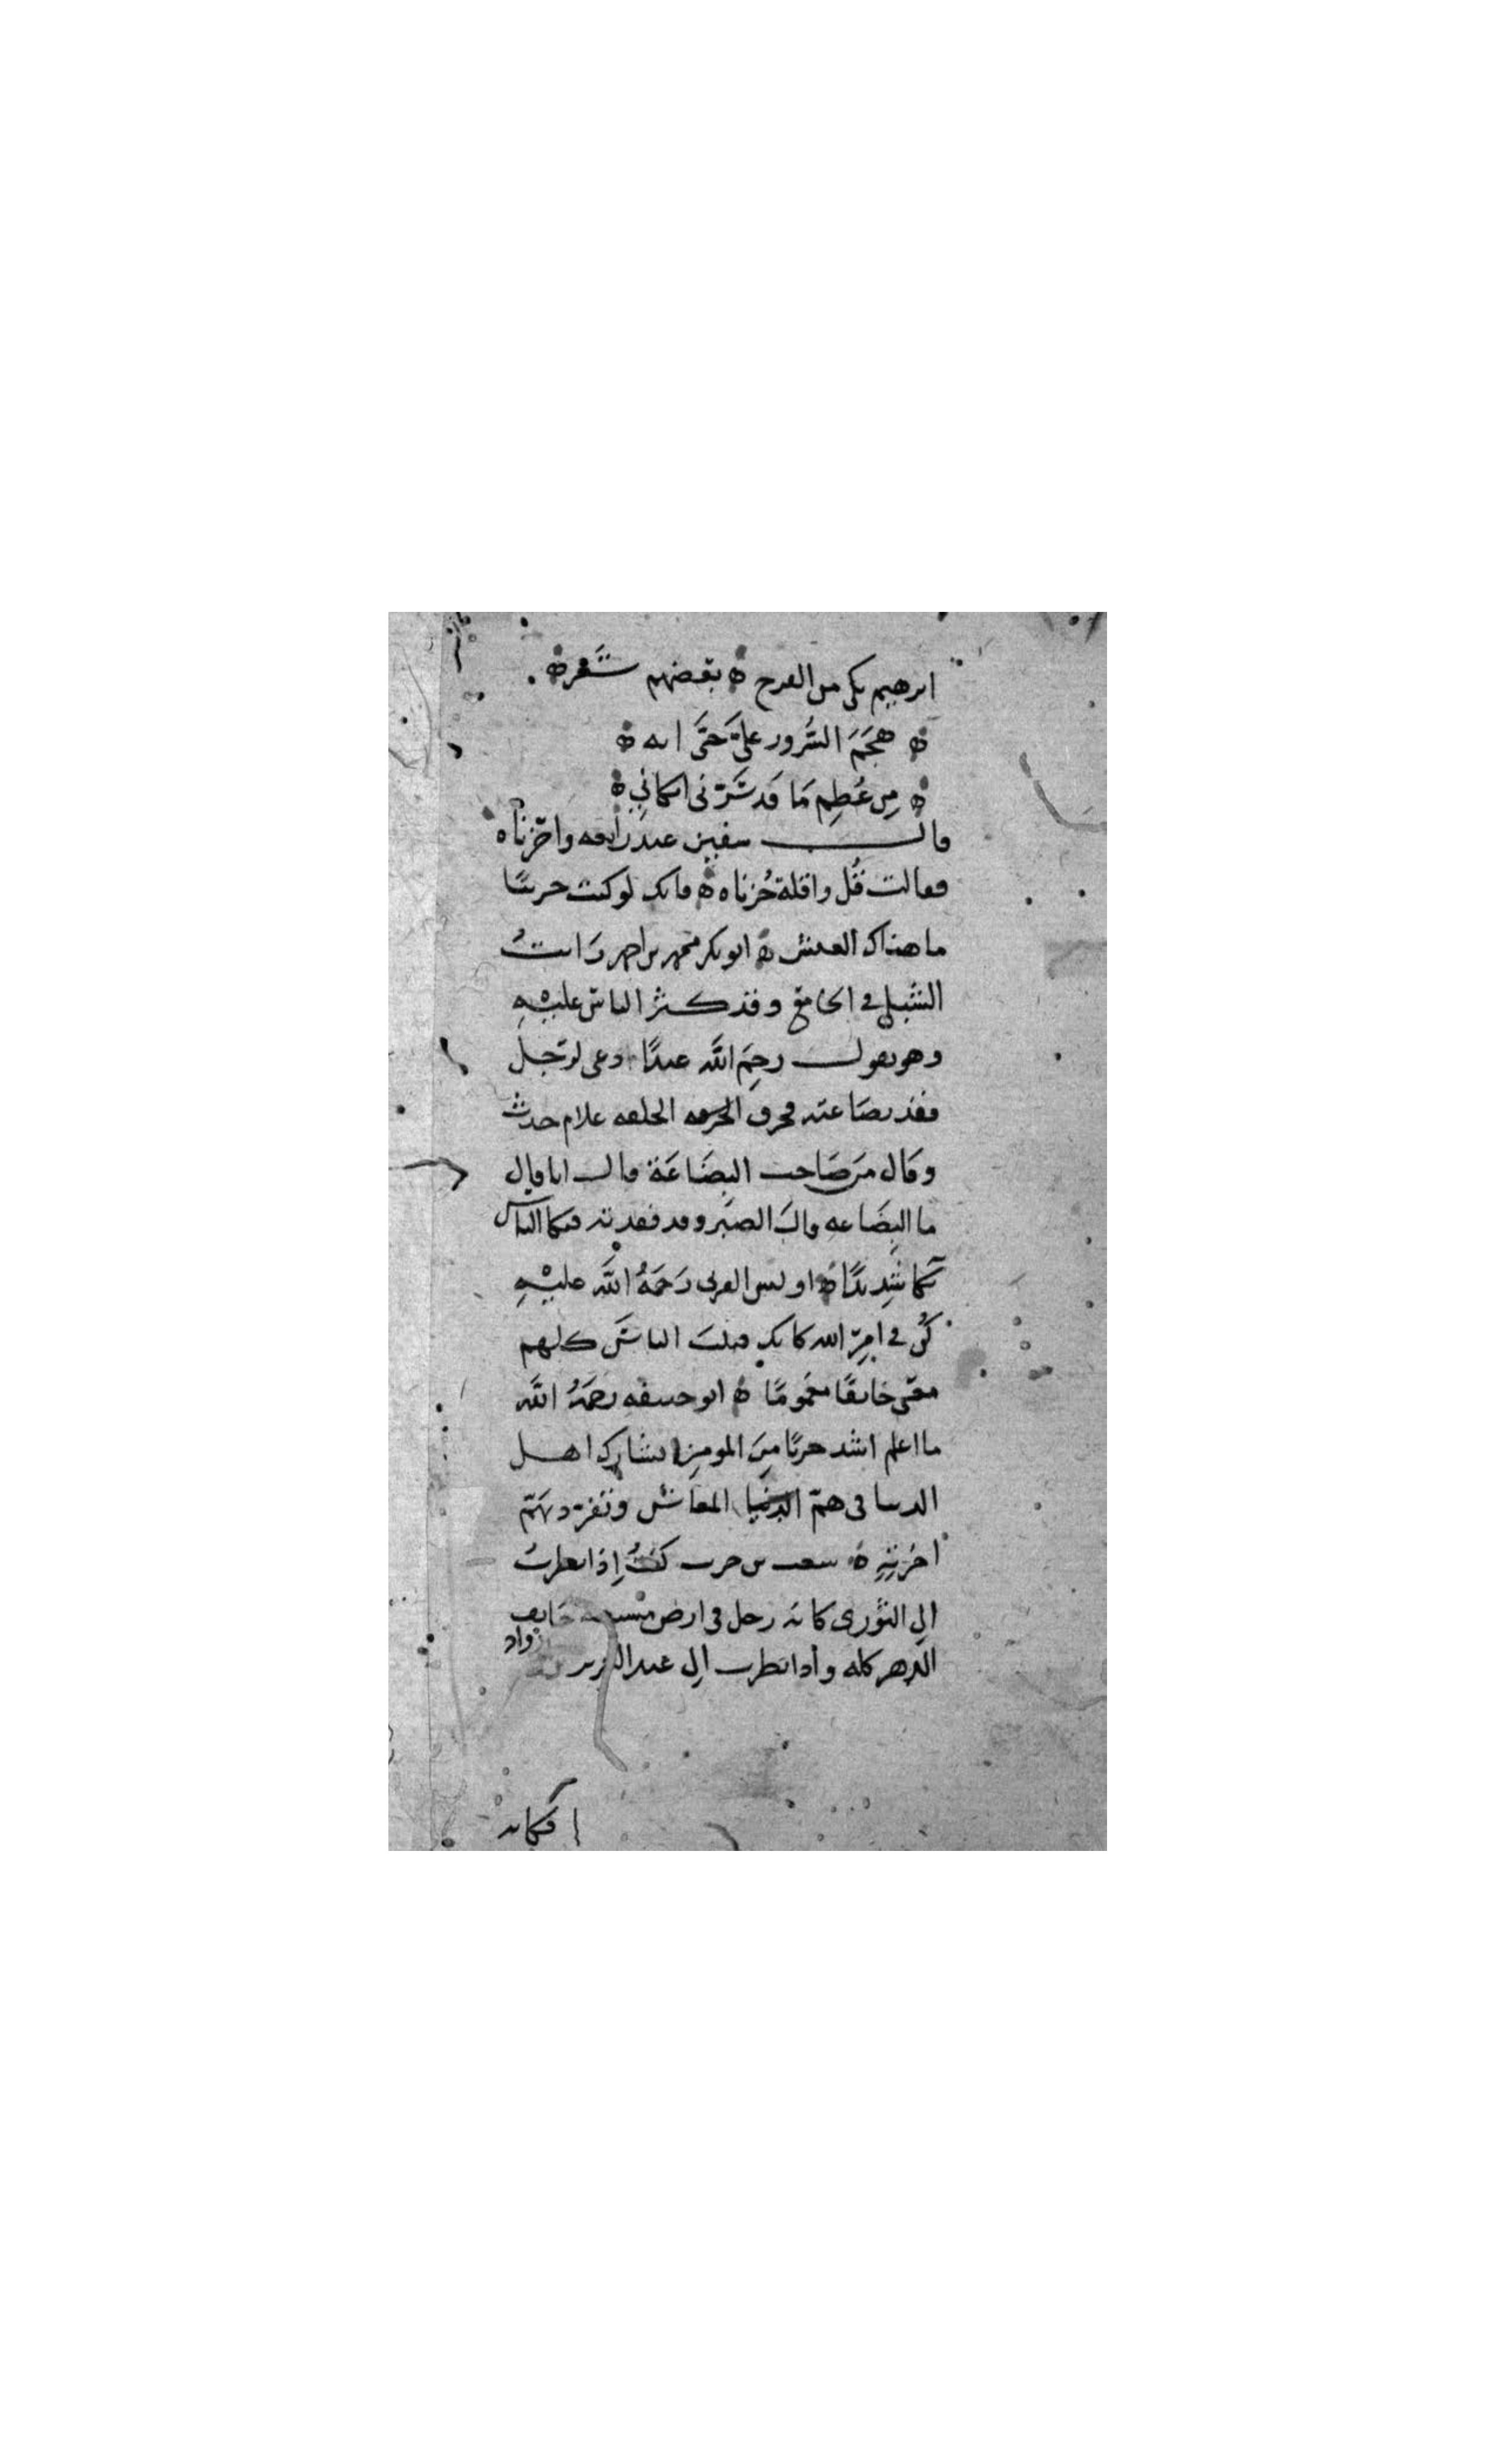 ابرهيم بكى من الفرح ه بعضهم شعر ه
ه هجَمَ السُّرور عليَّ حَتَّى انه ه
ه مِن عُظِم مَا قَد سَرَّني ابكاني ه
قال سفين عند رابعه واحزناه
فقالت قُل واقلة حُزناه ه فانك لو كنت حزينًا
ما هناك العيش ه ابو بكر محمد بن احمد رَايتُ
الشبلي في الجامع وقد كثر الناس عليْهِ
وهو يقول رحِمَ اللَّه عبدًا دعى لرجل
فقد بضاعته فخرق الحلقه غلام حدث
وقال من صَاحب البِضَاعَة قال انا قال
ما البِضَاعه قال الصبر وقد فقدته فبكا الناس
بُكا شدِيدًا ه اويس القرني رَحمَهُ اللَّه عليْهِ
كُن في امرِ الله كانك قتلت الناسَ كلهم
معنى خايفًا مغمومًا ه ابو حنيفه رحمَهُ اللَّه
ما اعلم اشد حزنًا مِنَ المومِن يشارك اهل
الدنيا في همّ المعاش وتفرّد بهَمّ
اخرتِهِ ه شعيب بن حرب كنتُ إذا نظرتُ
الى الثوري كانه رجل في ارض خايف
الدهر كله واذا نظرت الى عبد العزيز رواد
فكانه